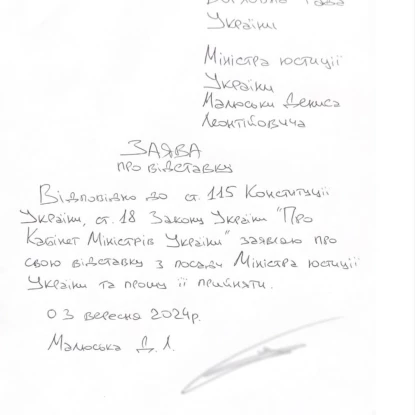 України
Міністра юстиції
України
Малюськи Дениса
Леонтійовича
ЗАЯВА
про відставку
Відповідно до ст. 115 Конституції
України, ст. 18 Закону України "Про
Кабінет Міністрів України" заявляю про
свою відставку з посади Міністра юстиції
України та прошу її прийняти.
03 вересня 2024р.
Малюська Д. Л.